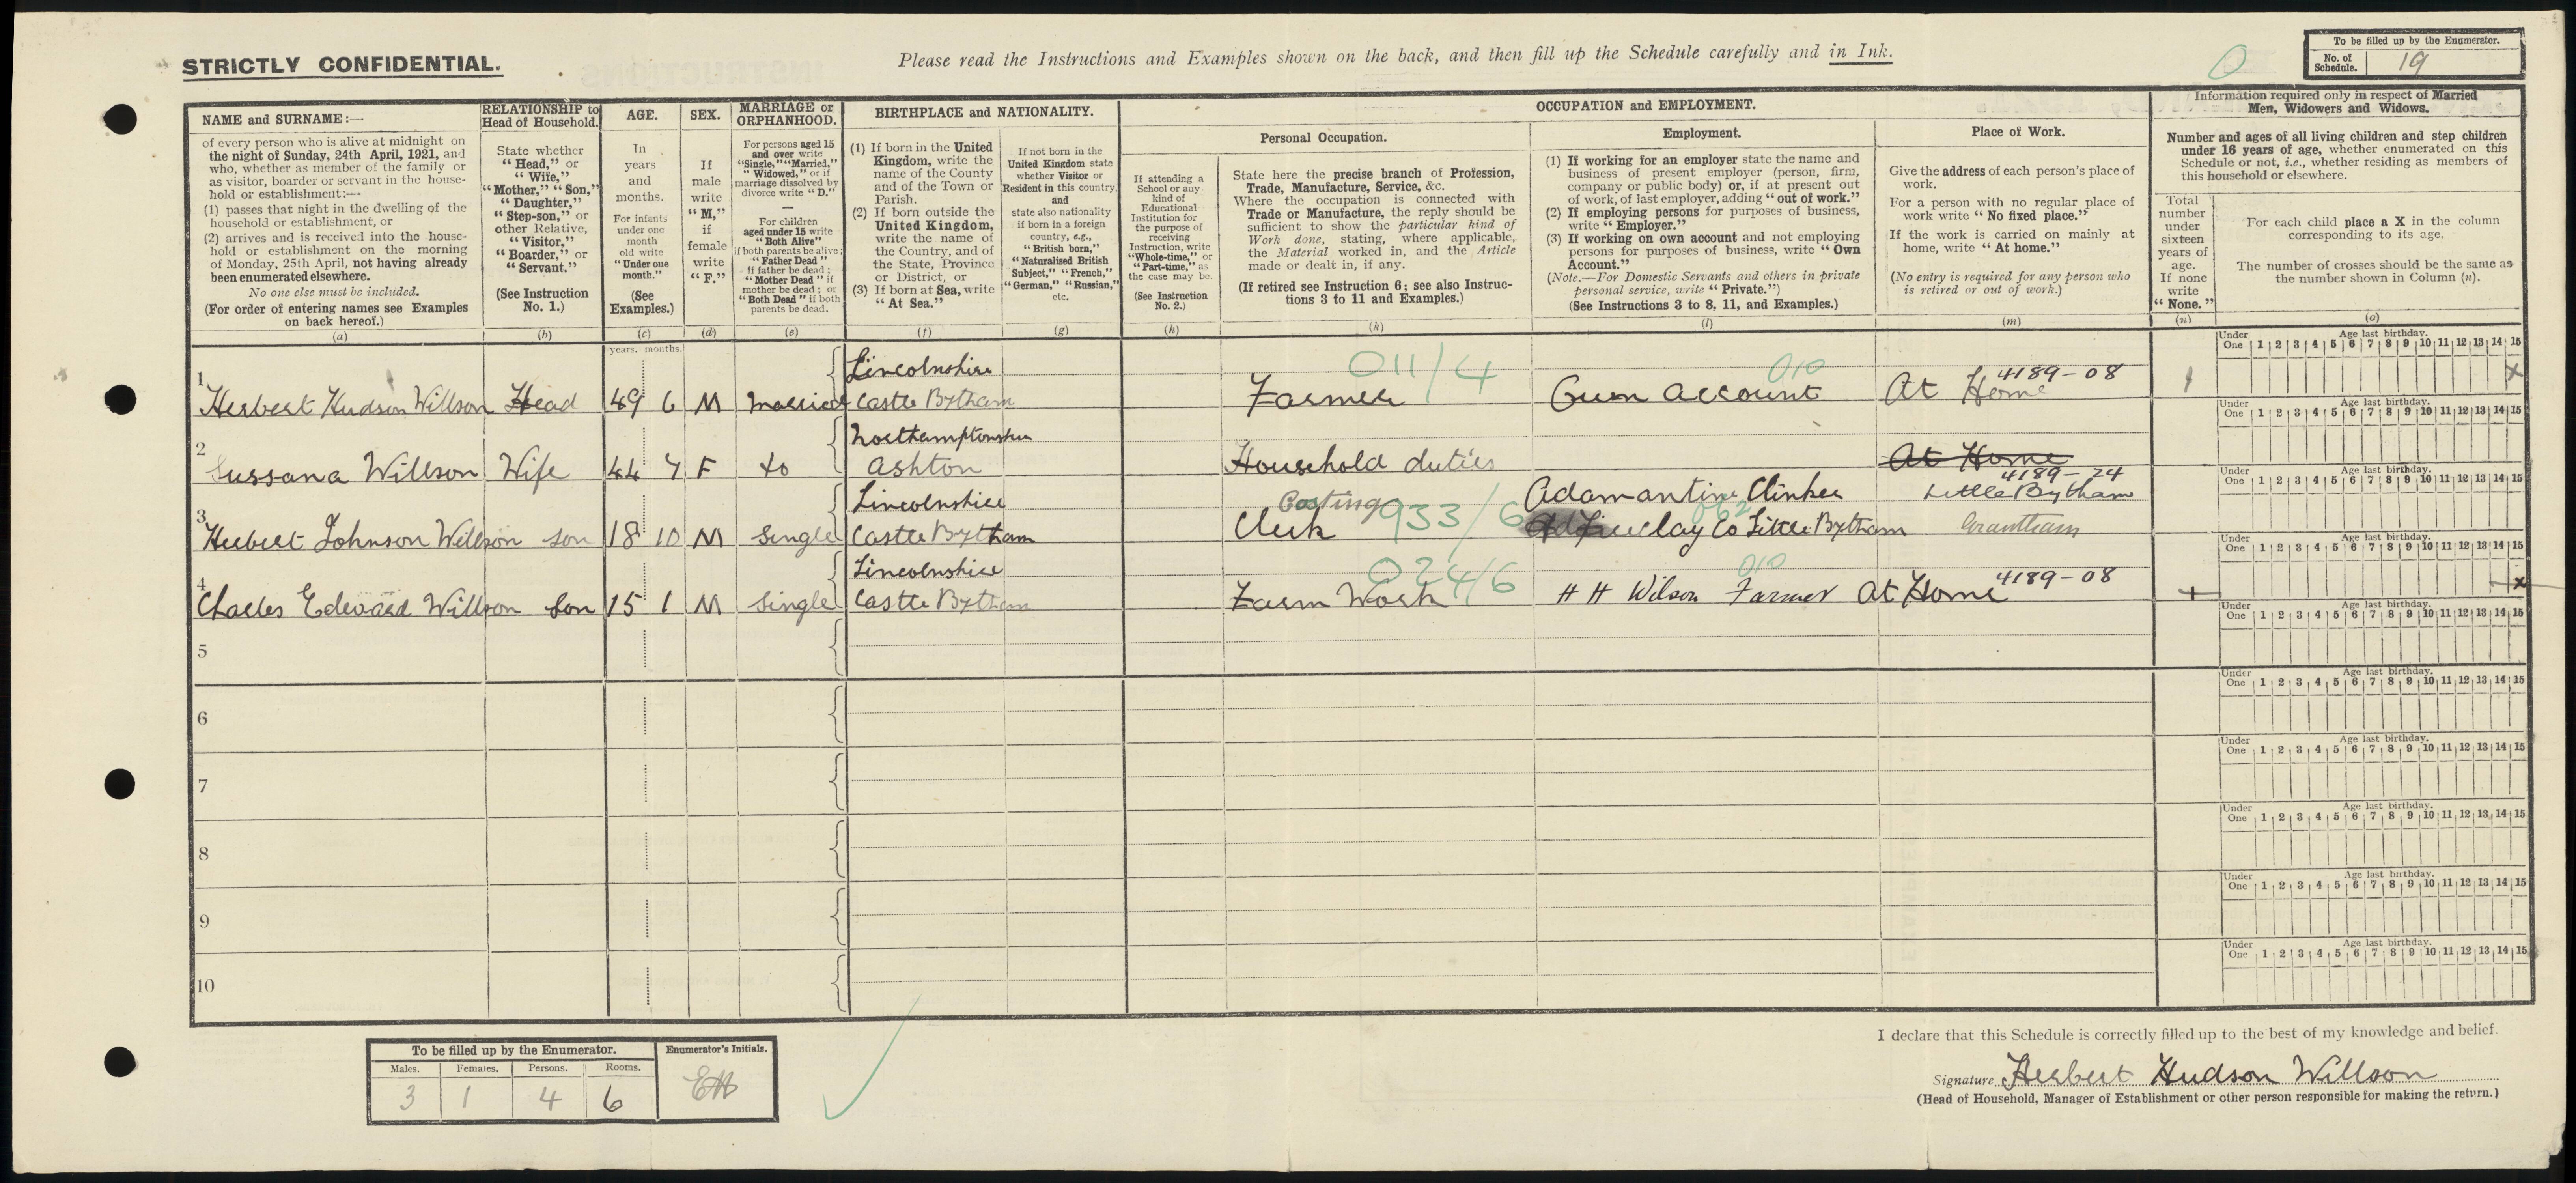 STRICTLY CONFIDENTIAL.
Please read the Instructions and Examples shown on the back, and then fill up the Schedule carefully and in Ink.
0
To be filled up by the Enumerator.
No. of Schedule. 19
NAME and SURNAME:—
of every person who is alive at midnight on
the night of Sunday, 24th April, 1921, and
who, whether as member of the family or
as visitor, boarder or servant in the house-
hold or establishment:—
(1) passes that night in the dwelling of the
household or establishment, or
(2) arrives and is received into the house-
hold or establishment on the morning
of Monday, 25th April, not having already
been enumerated elsewhere.
No one else must be included.
(For order of entering names see Examples
on back hereof.)
(a)
RELATIONSHIP to
Head of Household.
State whether
"Head," or
"Wife,"
"Mother," "Son,"
"Daughter,"
"Step-son," or
other Relative,
"Visitor,"
"Boarder," or
"Servant."
(See Instruction
No. 1.)
(b)
AGE.
In
years
and
months.
For infants
under one
month
old write
"Under one
month."
(See
Examples.)
(c)
years. months.
SEX.
If
male
write
"M,"
if
female
write
"F."
(d)
MARRIAGE or
ORPHANHOOD.
For persons aged 15
and over write
"Single," "Married,"
"Widowed," or if
marriage dissolved by
divorce write "D."
—
For children
aged under 15 write
"Both Alive"
if both parents be alive;
"Father Dead"
if father be dead;
"Mother Dead" if
mother be dead; or
"Both Dead" if both
parents be dead.
(e)
BIRTHPLACE and NATIONALITY.
(1) If born in the United
Kingdom, write the
name of the County
and of the Town or
Parish.
(2) If born outside the
United Kingdom,
write the name of
the Country, and of
the State, Province
or District, or
(3) If born at Sea, write
"At Sea."
(f)
If not born in the
United Kingdom state
whether Visitor or
Resident in this country,
and
state also nationality
if born in a foreign
country, e.g.,
"British born,"
"Naturalised British
Subject," "French,"
"German," "Russian,"
etc.
(g)
OCCUPATION and EMPLOYMENT.
If attending a
School or any
kind of
Educational
Institution for
the purpose of
receiving
Instruction, write
"Whole-time," or
"Part-time," as
the case may be.
(See Instruction
No. 2.)
(h)
Personal Occupation.
State here the precise branch of Profession,
Trade, Manufacture, Service, &c.
Where the occupation is connected with
Trade or Manufacture, the reply should be
sufficient to show the particular kind of
Work done, stating, where applicable,
the Material worked in, and the Article
made or dealt in, if any.
(If retired see Instruction 6; see also Instruc-
tions 3 to 11 and Examples.)
(k)
Employment.
(1) If working for an employer state the name and
business of present employer (person, firm,
company or public body) or, if at present out
of work, of last employer, adding "out of work."
(2) If employing persons for purposes of business,
write "Employer."
(3) If working on own account and not employing
persons for purposes of business, write "Own
Account."
(Note.—For Domestic Servants and others in private
personal service, write "Private.")
(See Instructions 3 to 8, 11, and Examples.)
(l)
Place of Work.
Give the address of each person's place of
work.
For a person with no regular place of
work write "No fixed place."
If the work is carried on mainly at
home, write "At home."
(No entry is required for any person who
is retired or out of work.)
(m)
Information required only in respect of Married
Men, Widowers and Widows.
Number and ages of all living children and step children
under 16 years of age, whether enumerated on this
Schedule or not, i.e., whether residing as members of
this household or elsewhere.
Total
number
under
sixteen
years of
age.
If none
write
"None."
(n)
For each child place a X in the column
corresponding to its age.
The number of crosses should be the same as
the number shown in Column (n).
(o)
Age last birthday.
Under One 1 2 3 4 5 6 7 8 9 10 11 12 13 14 15
Lincolnshire 011/4 010 4189-08
1 Herbert Hudson Willson Head 49 6 M Married Castle Bytham Farmer Own Account At Home 1 X
Age last birthday.
Under One 1 2 3 4 5 6 7 8 9 10 11 12 13 14 15
Northamptonshire
2 Sussana Willson Wife 44 7 F do Ashton Household duties At Home
Age last birthday.
Under One 1 2 3 4 5 6 7 8 9 10 11 12 13 14 15
Lincolnshire Costing Adamantine Clinker 4189-24 Little Bytham
3 Herbert Johnson Willson Son 18 10 M Single Castle Bytham Clerk 933/6 Fireclay Co Little Bytham Grantham
Age last birthday.
Under One 1 2 3 4 5 6 7 8 9 10 11 12 13 14 15
Lincolnshire 024/6 010 4189-08
4 Charles Edward Willson Son 15 1 M Single Castle Bytham Farm Work H H Wilson Farmer At Home X
Age last birthday.
Under One 1 2 3 4 5 6 7 8 9 10 11 12 13 14 15
5
Age last birthday.
Under One 1 2 3 4 5 6 7 8 9 10 11 12 13 14 15
6
Age last birthday.
Under One 1 2 3 4 5 6 7 8 9 10 11 12 13 14 15
7
Age last birthday.
Under One 1 2 3 4 5 6 7 8 9 10 11 12 13 14 15
8
Age last birthday.
Under One 1 2 3 4 5 6 7 8 9 10 11 12 13 14 15
9
Age last birthday.
Under One 1 2 3 4 5 6 7 8 9 10 11 12 13 14 15
10
To be filled up by the Enumerator. Enumerator's Initials.
Males. Females. Persons. Rooms.
3 1 4 6 EH
I declare that this Schedule is correctly filled up to the best of my knowledge and belief.
Signature Herbert Hudson Willson
(Head of Household, Manager of Establishment or other person responsible for making the return.)